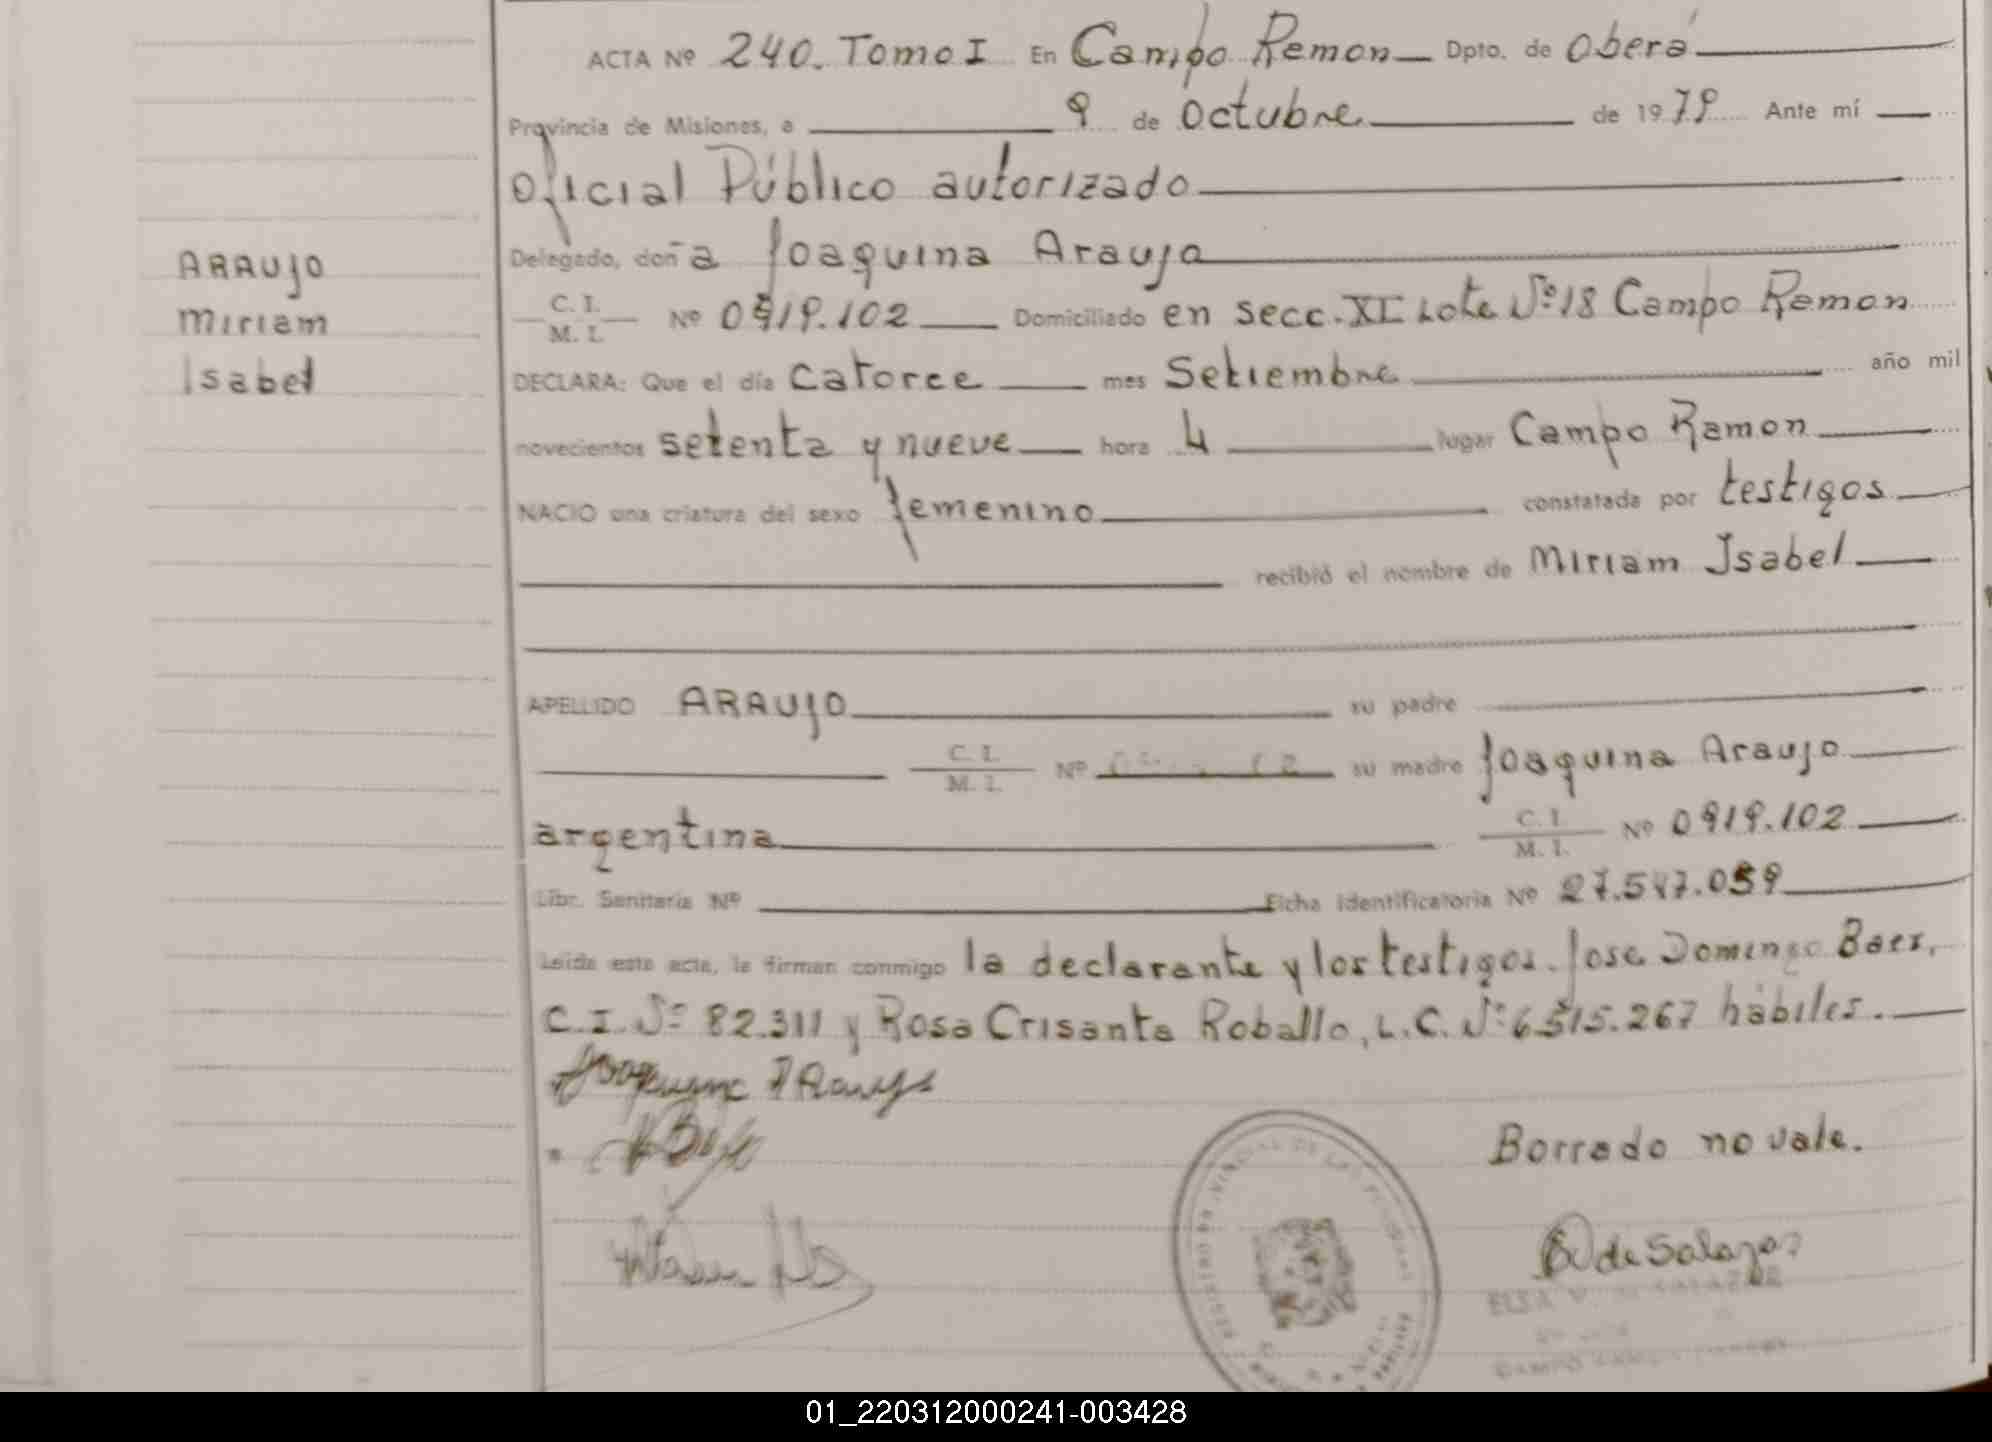 ACTA Nº 240. Tomo I En Campo Ramon Dpto. de Oberá
Provincia de Misiones, a 9 de Octubre de 1979 Ante mí
Oficial Público autorizado
Delegado, doña Joaquina Araujo
ARAUJO
C. I.
M. I. Nº 0919.102 Domiciliado en secc. XI Lote Nº 18 Campo Ramon
Miriam
DECLARA: Que el día catorce mes Setiembre año mil
Isabel
novecientos setenta y nueve hora 4 lugar Campo Ramon
NACIO una criatura del sexo femenino constatada por testigos
recibió el nombre de Miriam Isabel
APELLIDO ARAUJO su padre
C. I.
M. I. Nº su madre Joaquina Araujo
argentina C. I.
M. I. Nº 0919.102
Libr. Sanitaria Nº Ficha Identificatoria Nº 27.547.059
Leída esta acta, la firman conmigo la declarante y los testigos. Jose Domingo Baez,
C.I. Nº 82.311 y Rosa Crisanta Roballo, L.C. Nº 6.515.267 hábiles.
Joaquina Araujo
Borrado no vale.
de Salazar
ELSA V. DE SALAZAR
CAMPO RAMON
01_220312000241-003428